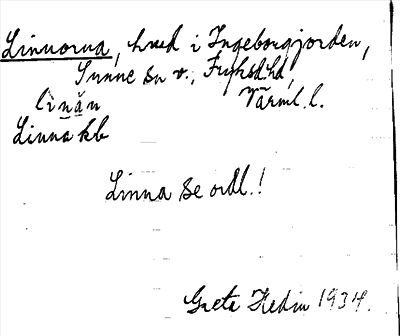 Linnorna, hmd i Ingeborgjorden,
Sunne sn v., Fryksd. hd,
lìnä̀n Värml. l.
Linna kb
Linna se ordl.!
Greta Hedin 1934.